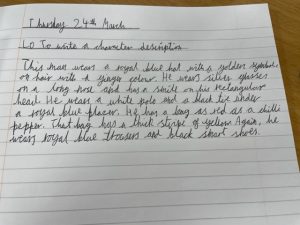 Thursday 24th March
LO To write a character description
This man wears a royal blue hat with a golden symbol
or hair with a ginger colour. He wears silver glasses
on a long nose and has a smile on his rectangular
head. He wears a white polo and a black tie under
a royal blue blazer. He has a bag as red as a chilli
pepper. That bag has a thick stripe of yellow. Again, he
wears royal blue trousers and black smart shoes.